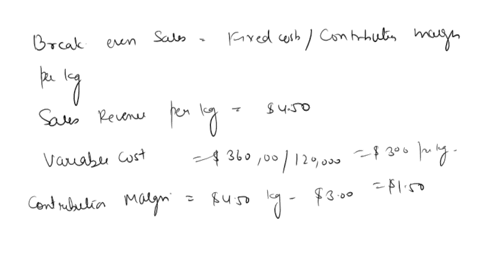 Break even Sales = Fixed cost / Contribution margin
per kg
Sales Revenue per kg = $4.50
Variable Cost = $ 360,00/120,000 = $ 300 per kg.
Contribution Margin = $4.50 kg - $3.00 = $1.50